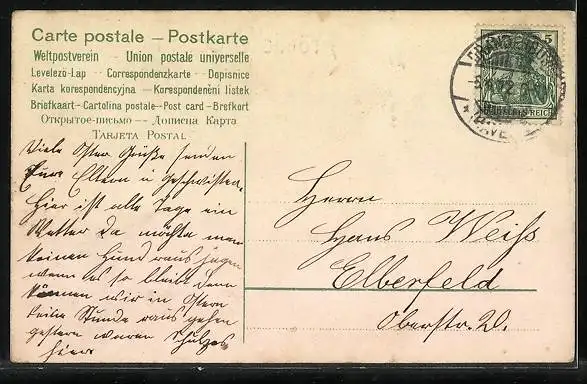 Carte postale — Postkarte
Weltpostverein - Union postale universelle
Levelező-Lap - Correspondenzkarte - Dopisnice
Karta korespondencyjna - Korespondenčni listek
Briefkaart - Cartolina postale - Post card - Brefkort
Открытое-письмо - Дописна Карта
TARJETA POSTAL
5
DEUTSCHES REICH
Viele Oster Grüße senden
Eure Eltern u Geschwister.
Hier ist alle Tage ein
Wetter Da möchte man
keinen Hund raus jagen
wenn es so bleibt Dann
können wir in Ostern
keine Stunde raus gehen
gestern waren Schulzes
hier
Herrn
Hans Weiß
Elberfeld
Oberstr. 20.